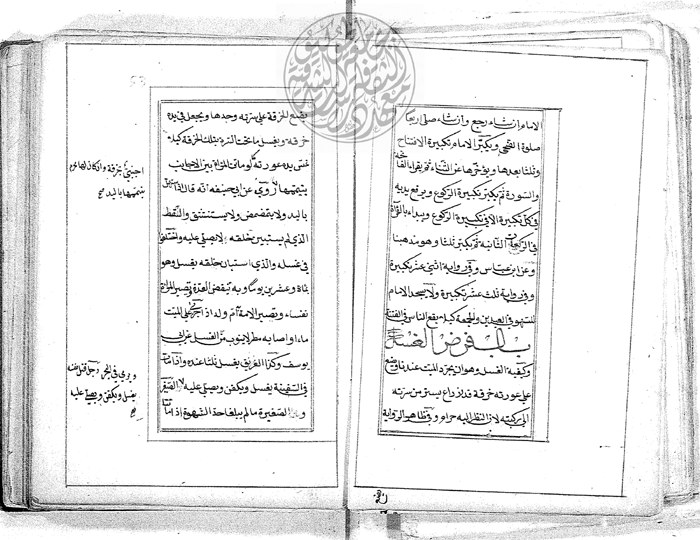 الامام ان شاء رجع وان شاء صلى اربعا
صلوة الضحى ويكبر الامام تكبيرة الافتتاح
وثلثا بعدها ويؤخرها عن الثناء ثم يقراء الفاتحة
والسورة ثم يكبر تكبيرة الركوع ويرفع يديه
في كل تكبيرة الا في تكبيرة الركوع ويبداء بالقراءة
في الركعة الثانية ثم يكبر ثلثا وهو مذهبنا
وعن ابن عباس وفي رواية اثنى عشر تكبيرة
وفي رواية ثلث عشر تكبيرة ولا يسجد الامام
للسهو في العيدين والجمعة كيلا يقع الناس في الفتنة
باب فرض الغسل
وكيفية الغسل وهو ان يجرد الميت عندنا ويضع
على عورته خرقة قدر ذراع يستر من سرته
الى ركبته لان النظر اليه حرام وفي ظاهر الرواية
يضع الخرقة على سرته وحدها ويجعل في يده
خرقة ويغسل ما تحت السرة بتلك الخرقة كيلا
يمس يده عورته ولو مات المراة بين الاجانب
يتيممها روي عن ابي حنيفة انه قال
باليد ولا يتمضمض ولا يستنشق والسقط
الذي لم يستبين خلقته لا يصلى عليه واختلفوا
في غسله والذي استبان خلقته يغسل وهو
مائة وعشرين يوما وبه تنقض العدة وتصير المراة
نفساء وتصير الامة ام ولد اذا جرى على الميت
ماء او اصابه مطر لا ينوب عن الغسل عن ابي
يوسف وكذا الغريق يغسل ثلثا عنده واذا مات
في السفينة يغسل ويكفن ويصلى عليه
الصغيرة ما لم يبلغا حد الشهوة اذا ماتا
اجنبي بخرقة وان كان لها محرم
يتيممها باليد صح
ويرمى في البحر رجل قتل نفسه
يغسل ويكفن ويصلى عليه
صح